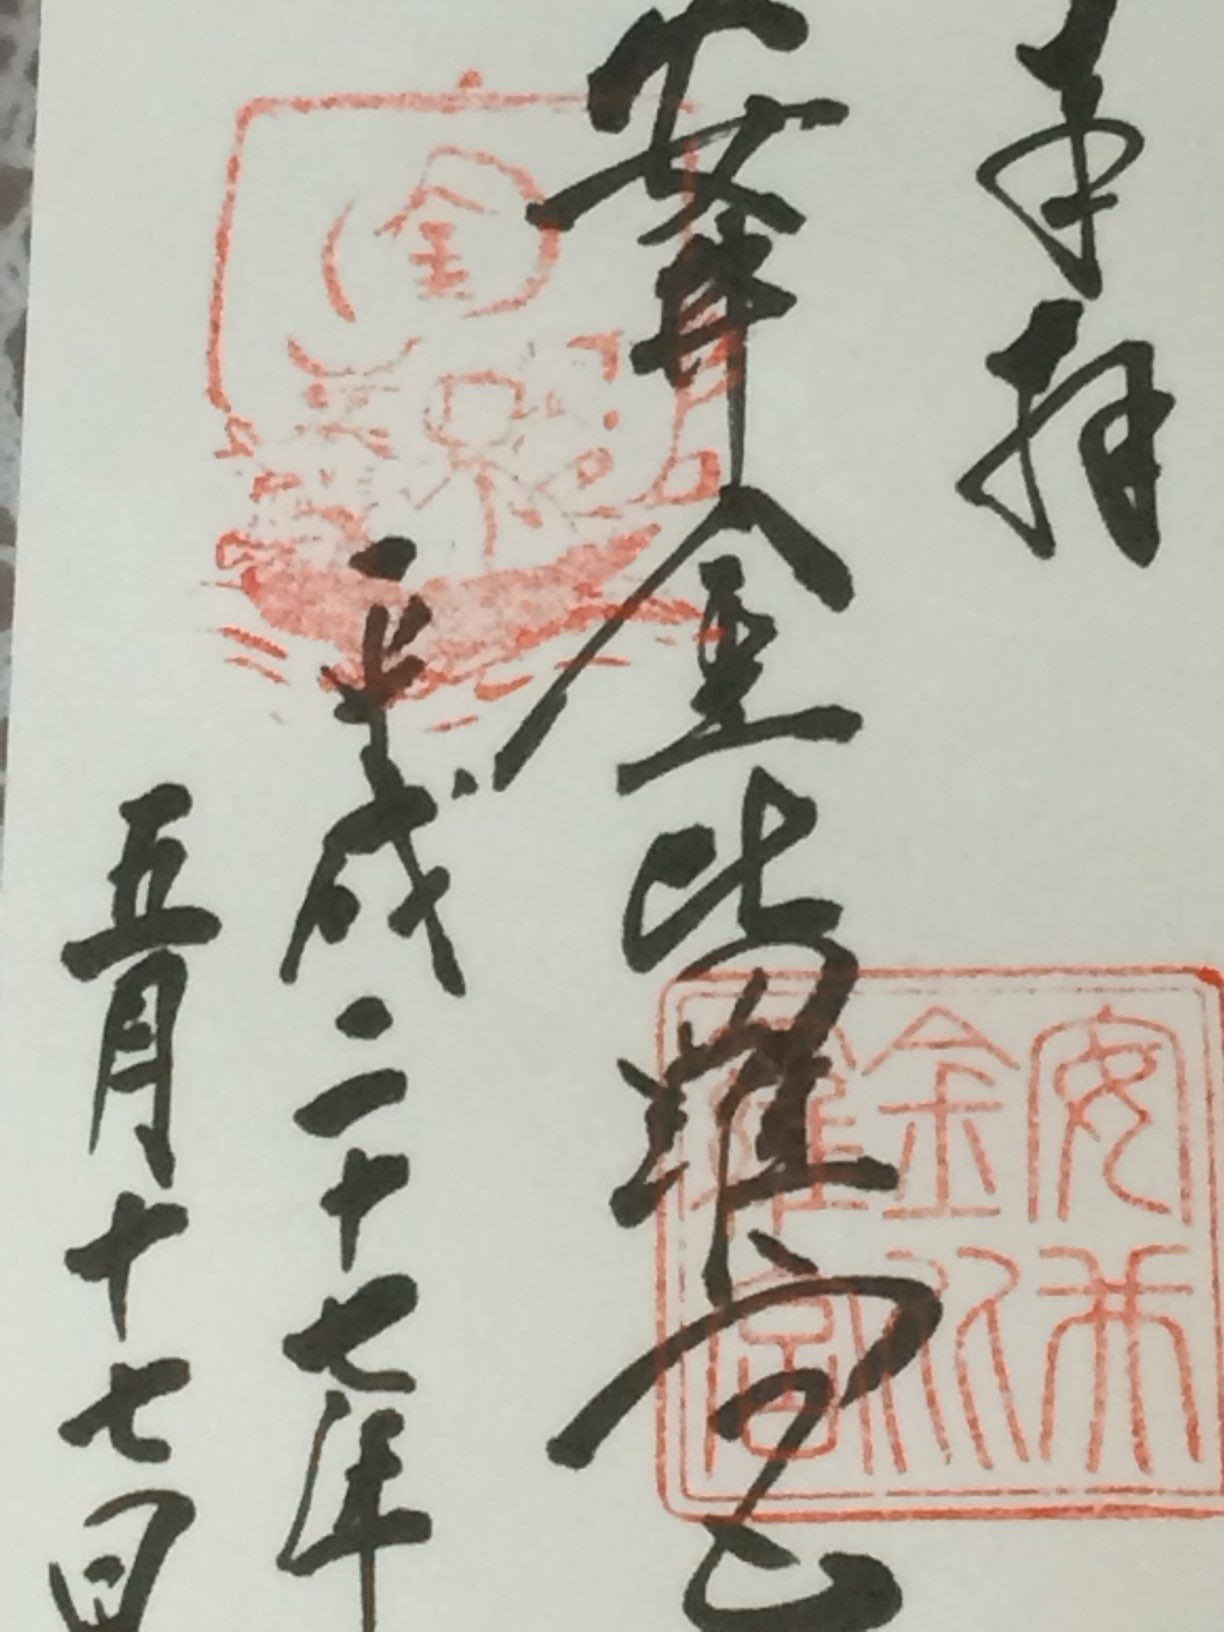 奉拝
安井金比羅宮
平成二十七年
五月十七日
安井
金比
羅宮
金